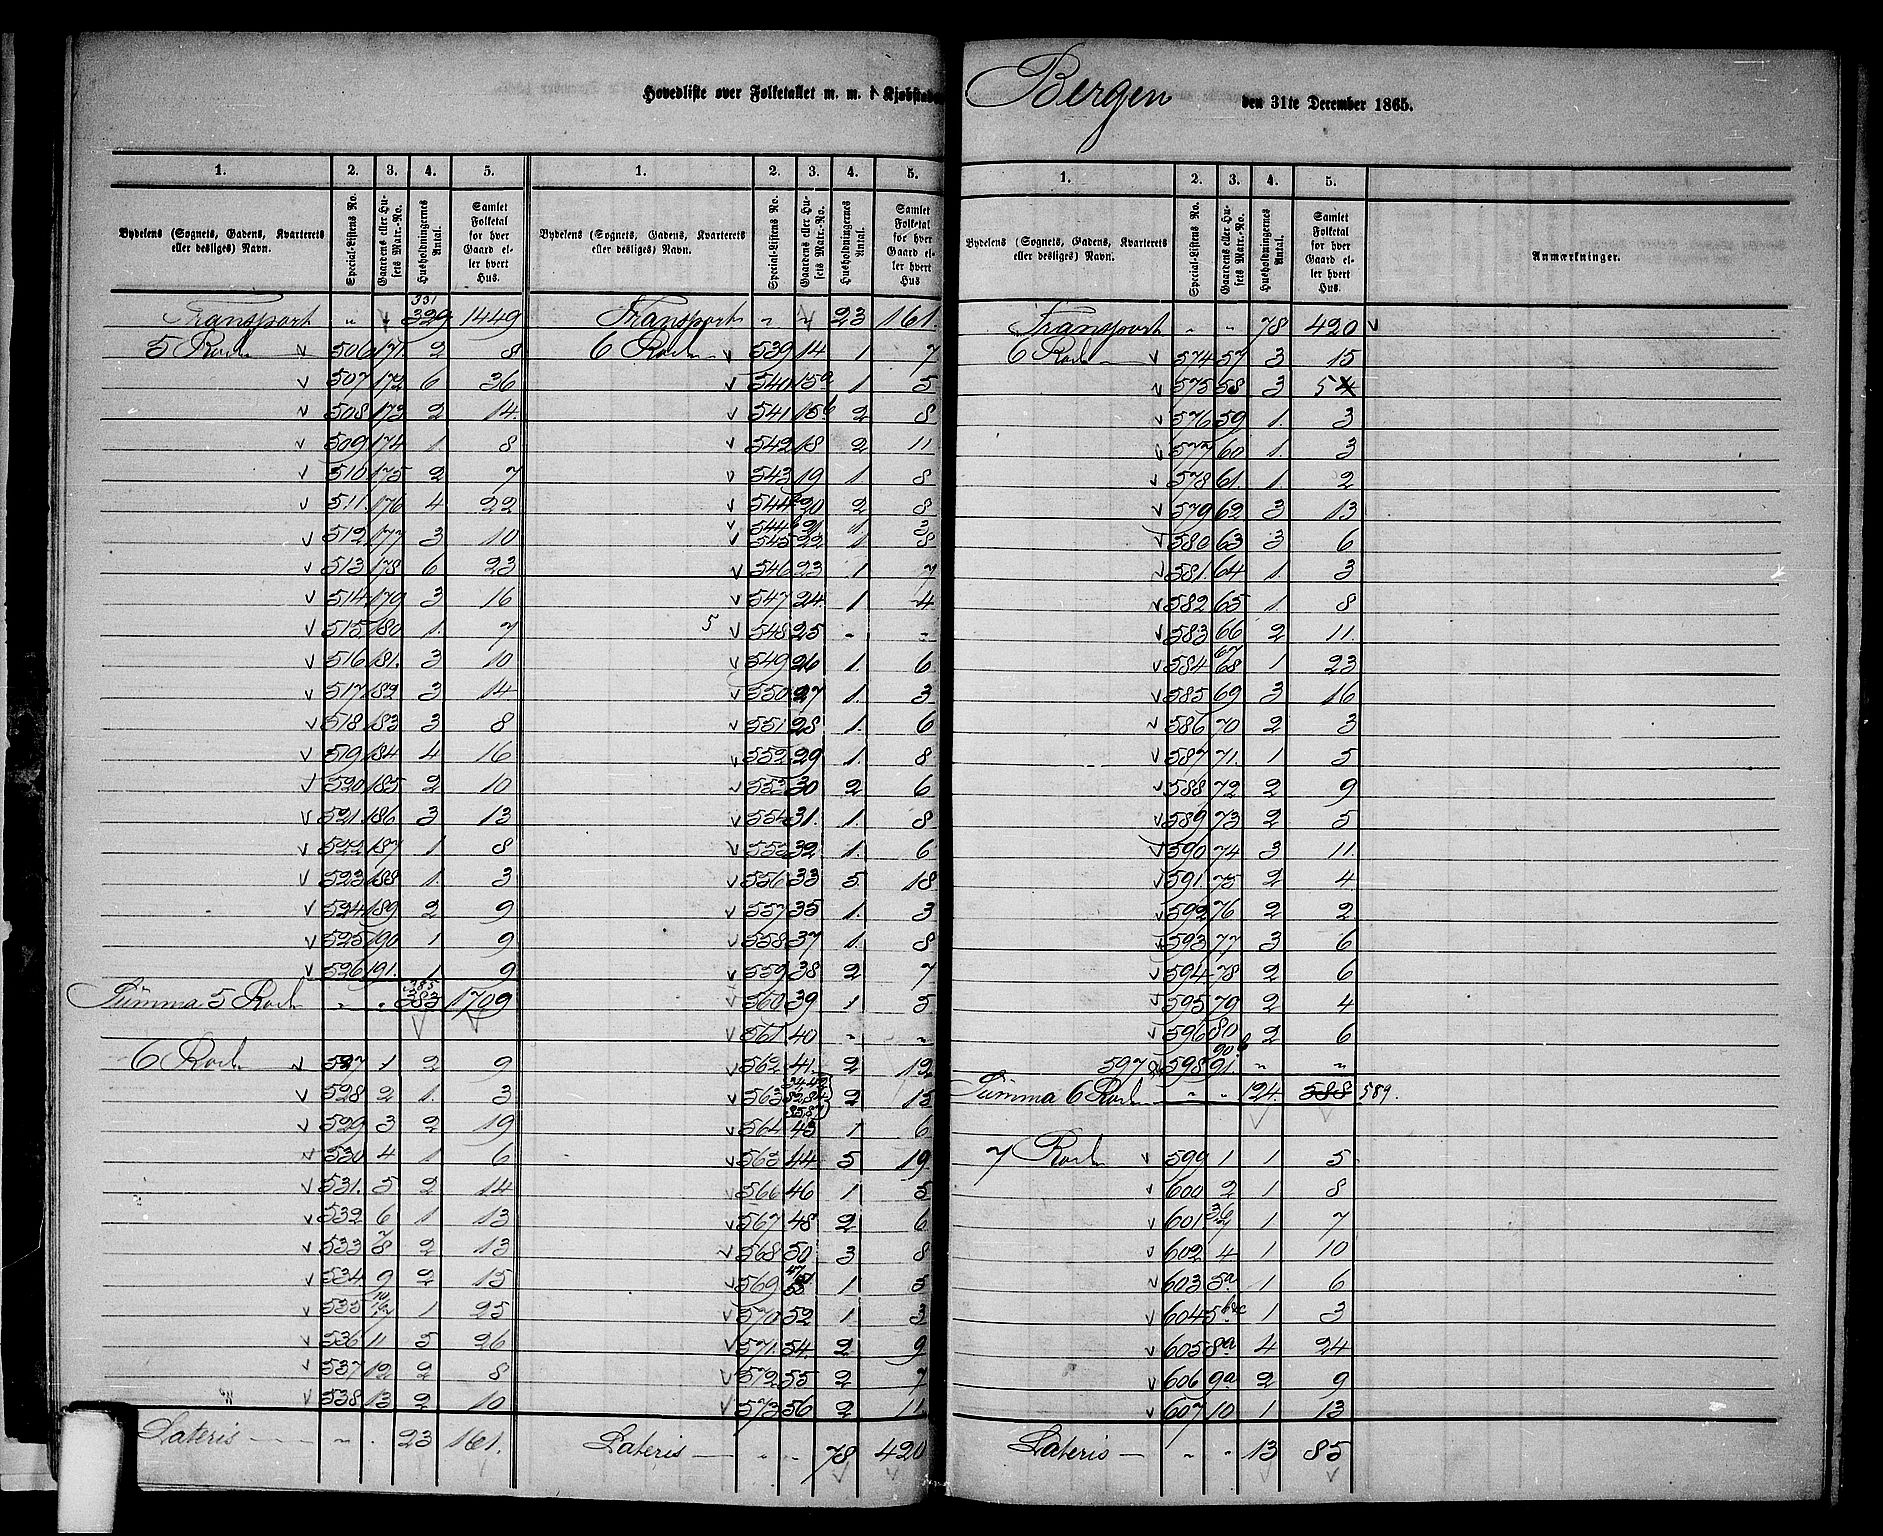 Hovedliste over Folketallet m. m. i Kjøbstaden Bergen den 31te December 1865.
1. 2. 3. 4. 5.
Bydelens (Sognets, Gadens, Kvarterets eller desliges) Navn. Special-Listens No. Gaardens eller Husets Matr.-No. Husholdningernes Antal. Samlet Folketal for hver Gaard eller hvert Hus.
Transport " " 331 329 1449
5 Rode 506 171. 2 8
507 172 6 36
508 173 2 14
509 174 1. 8
510 175 2 7
511. 176 4 22
512 177 3 10
513 178 6 23
514 179 3 16
515 180 1. 7
516 181. 3 10
517 182 3 14
518 183 3 8
519 184 4 16
520 185 2 10
521. 186 3 13
522 187 1 8
523 188 1. 3
524 189 2 9
525 190 1 9
526 191. 1 9
Summa 5 Rode " " 385 383 1709
6 Rode 527 1 2 9
528 2 1. 3
529 3 2 19
530 4 1 6
531. 5 2 14
532 6 1 13
533 7 8 2 13
534 9 2 15
535 10 1 25
536 11 5 26
537 12 2 8
" 538 13 2 10
Lateris " " 23 161.
1. 2. 3. 4. 5.
Bydelens (Sognets, Gadens, Kvarterets eller desliges) Navn. Special-Listens No. Gaardens eller Husets Matr.-No. Husholdningernes Antal. Samlet Folketal for hver Gaard eller hvert Hus
Transport " " 23 161.
6 Rode 539 14 1 7
540 15a 1 5
541 15b 2 8
542 18 2 11
543 19 1 8
544a 20 2 8
544b 21 1 3
545 22 1 8
546 23 1 7
547 24. 1 4
5 548 25 - -
549 26 1. 6
550 27 1. 3
551 28 1. 6
552 29 1. 8
553 30 2 6
554 31. 1. 8
555 32 1. 6
556 33 5 18
557 35 1. 3
558 37 1. 8
559 38 2 7
560 39 1 5
561. 40 - -
562 41. 2 12
563 2 15
564 43 1 6
565 44 5 19
566 46 1 5
567 48 2 6
568 50 3 8
569 1 5
570 52 1 3
571. 54. 2 9
572 55 2 7
573 56 2 11
Lateris " " 78 420
1. 2. 3. 4. 5.
Bydelens (Sognets, Gadens, Kvarterets eller desliges) Navn. Special-Listens No. Gaardens eller Husets Matr.-No. Husholdningernes Antal. Samlet Folketal for hver Gaard eller hvert Hus. Anmærkninger.
Transport " " 78 420
6 Rode 574 57 3 15
575 58 3 5 4
576 59 1. 3
577 60 1. 3
578 61. 1 2
579 62 3 13
580 63 3 6
581. 64 1. 3
582 65 1. 8
583 66 2 11
584 67 68 1 23
585 69 3 16
586 70 2 3
587 71. 1 5
588 72 2 9
589 73 2 5
590 74 3 11.
591. 75 2 4
592 76 2 2
593 77 3 6
594 78 2 6
595 79 2 4
596 80 2 6
597 & 598 90b 91. " "
Summa 6 Rode " " 124. 588 589.
7 Rode 599 1 1 5
600 2 1 8
601 1 7
602 4 1 10
603 5a 1 6
604 5b&c 1 3
605 8a 4 24
606 9a 2 9
607 10 1 13
Lateris " " 13 85